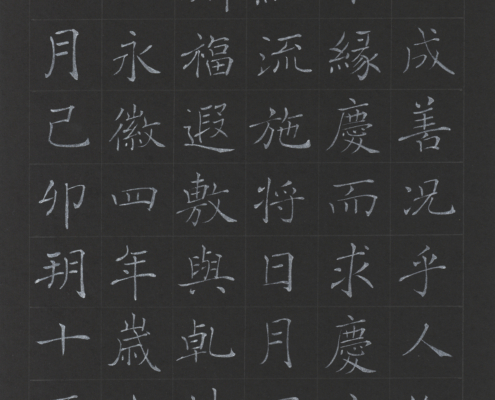 成善況乎人
縁慶而求慶
流施将日月
福遐敷與乹
永徽四年歳
月己卯朔十